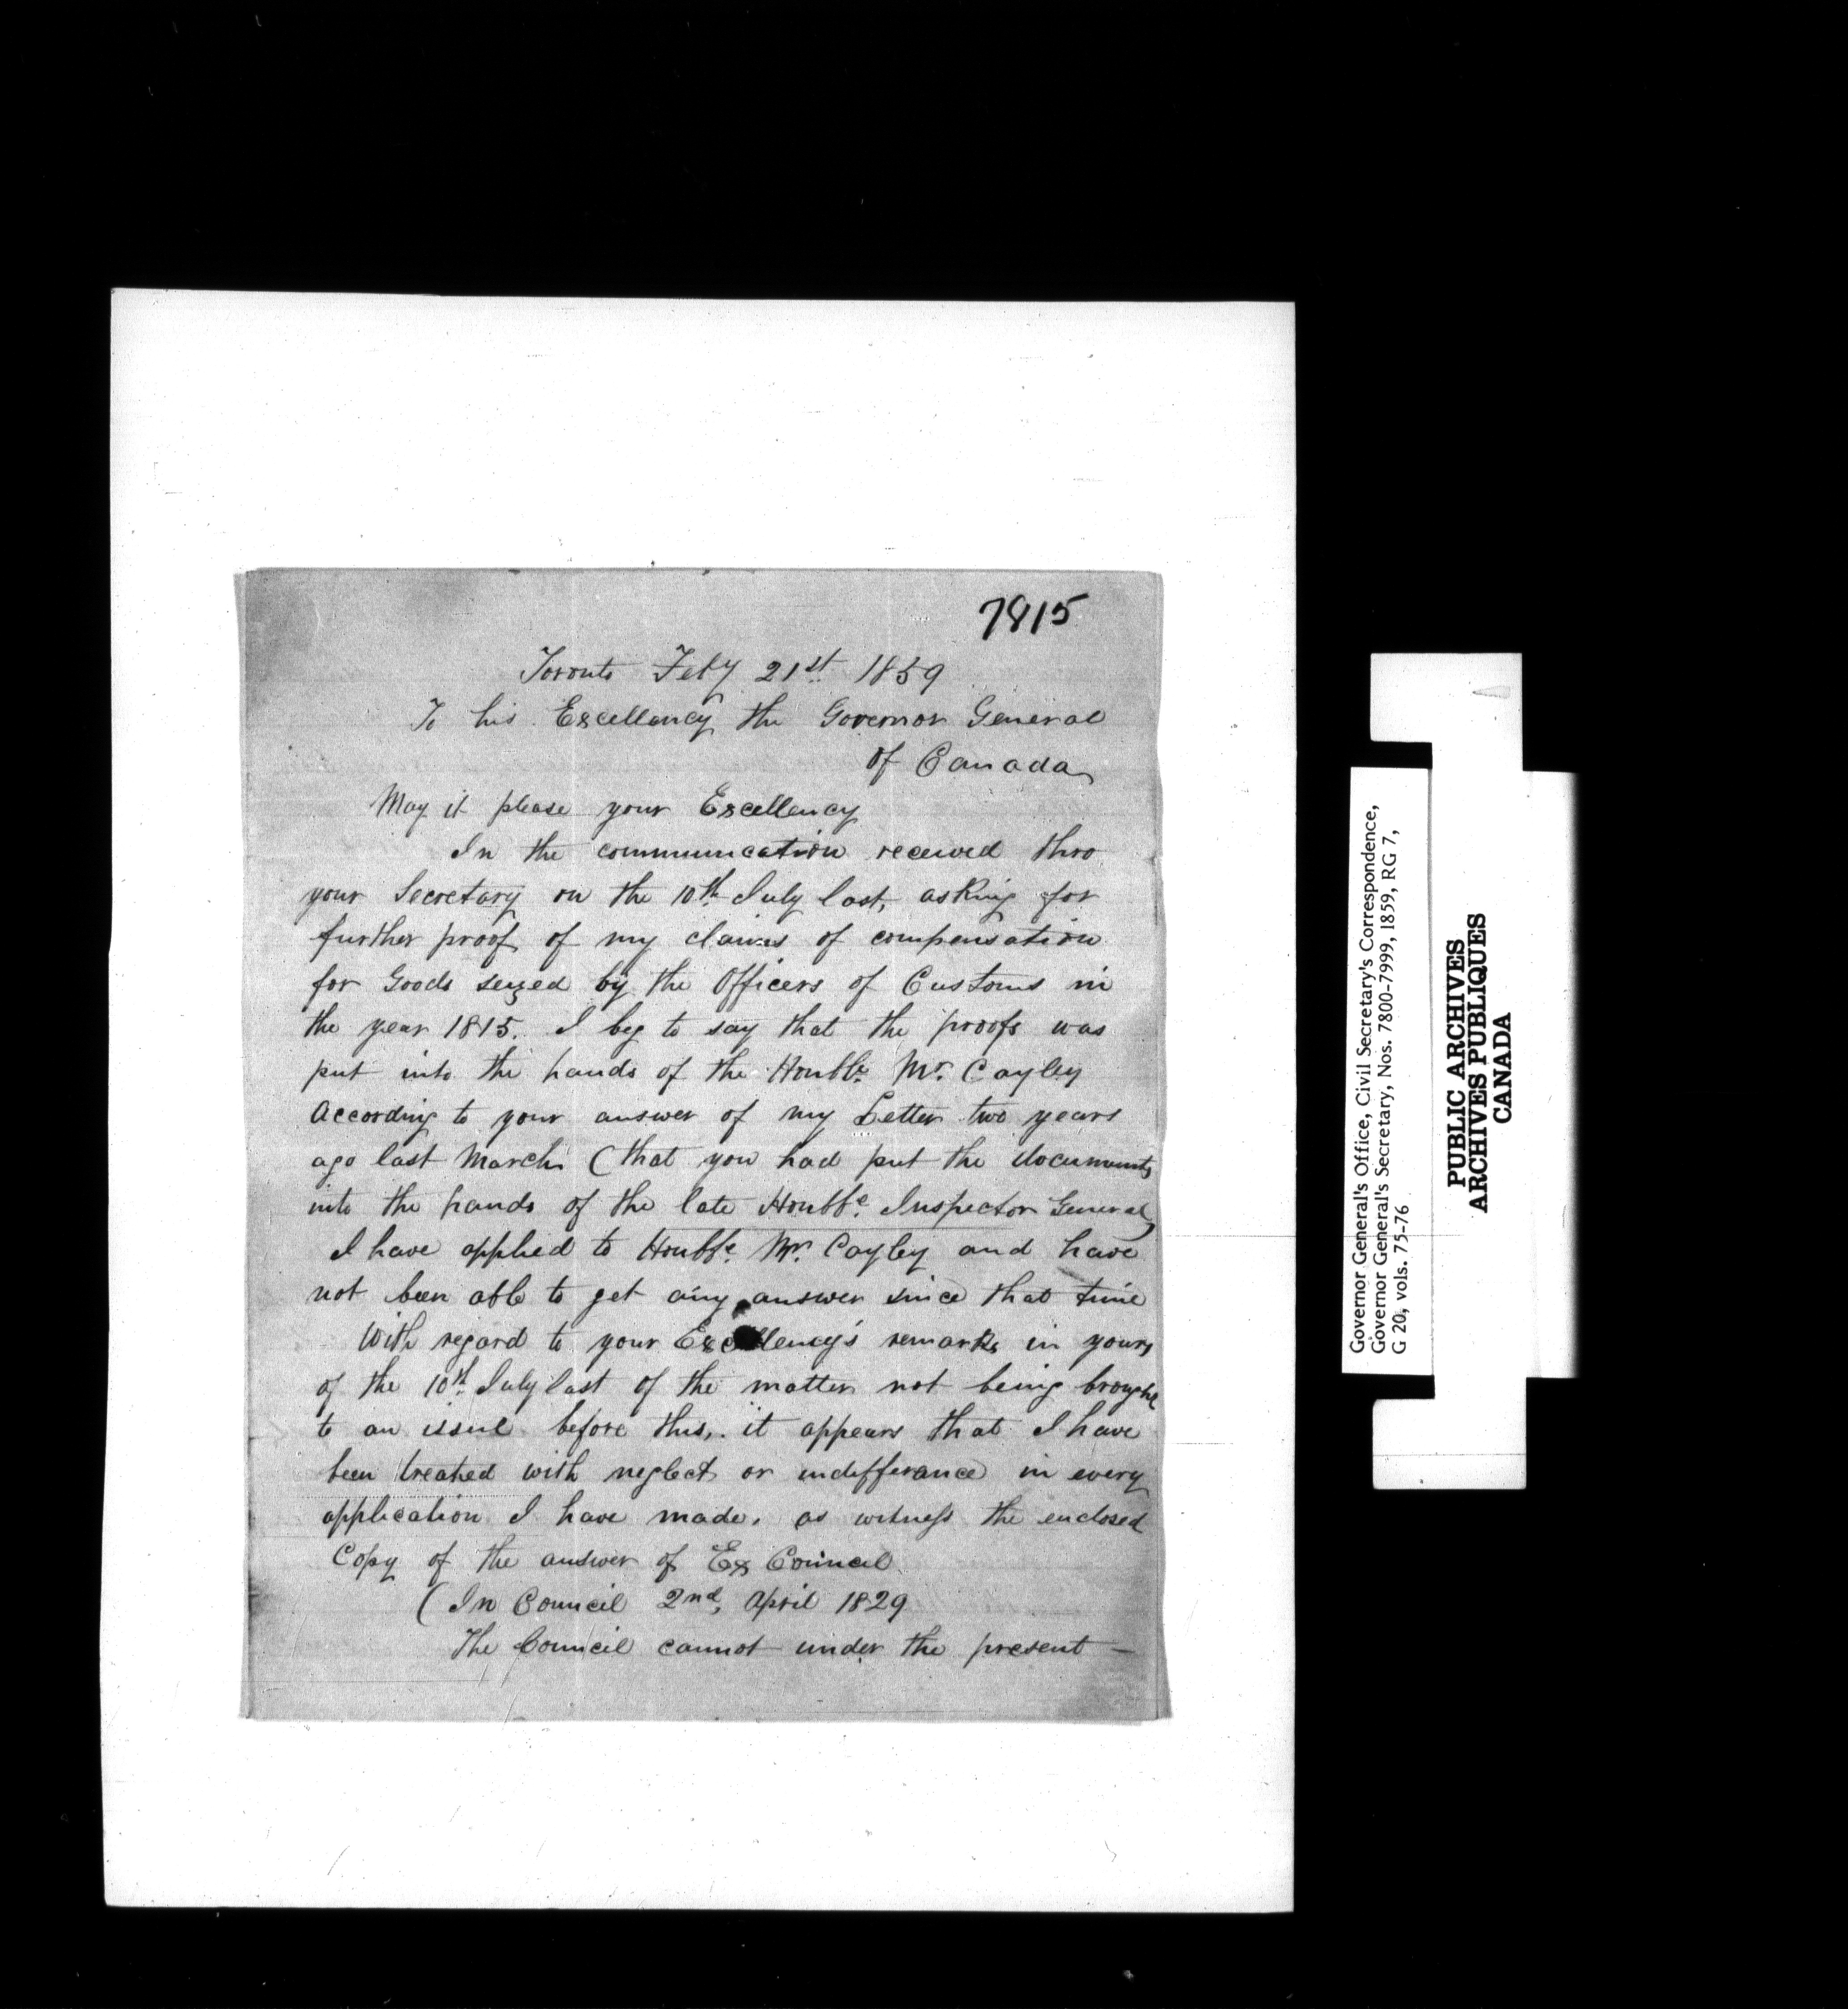 7815
Toronto Feby 21st 1859
To his Excellency the Governor General
of Canada
May it please your Excellency
In the communication received thro
your Secretary on the 10th July last, asking for
further proof of my claims of compensation
for Goods seized by the Officers of Customs in
the year 1815. I beg to say that the proofs was
put into the hands of the Honble. Mr. Cayley
According to your answer of my Letter two years
ago last March (that you had put the documents
into the hands of the late Honble. Inspector General)
I have applied to Honble. Mr. Cayley and have
not been able to get any answer since that time
With regard to your Excellency's remarks in yours
of the 10th July last of the matter not being brought
to an issue before this, it appears that I have
been treated with neglect or indifferance in every
application I have made, as witness the enclosed
Copy of the answer of Ex Council
(In Council 2nd, April 1829
The Council cannot under the present —
Governor General's Office, Civil Secretary's Correspondence,
Governor General's Secretary, Nos. 7800-7999, 1859, RG 7,
G 20, vols. 75-76
PUBLIC ARCHIVES
ARCHIVES PUBLIQUES
CANADA